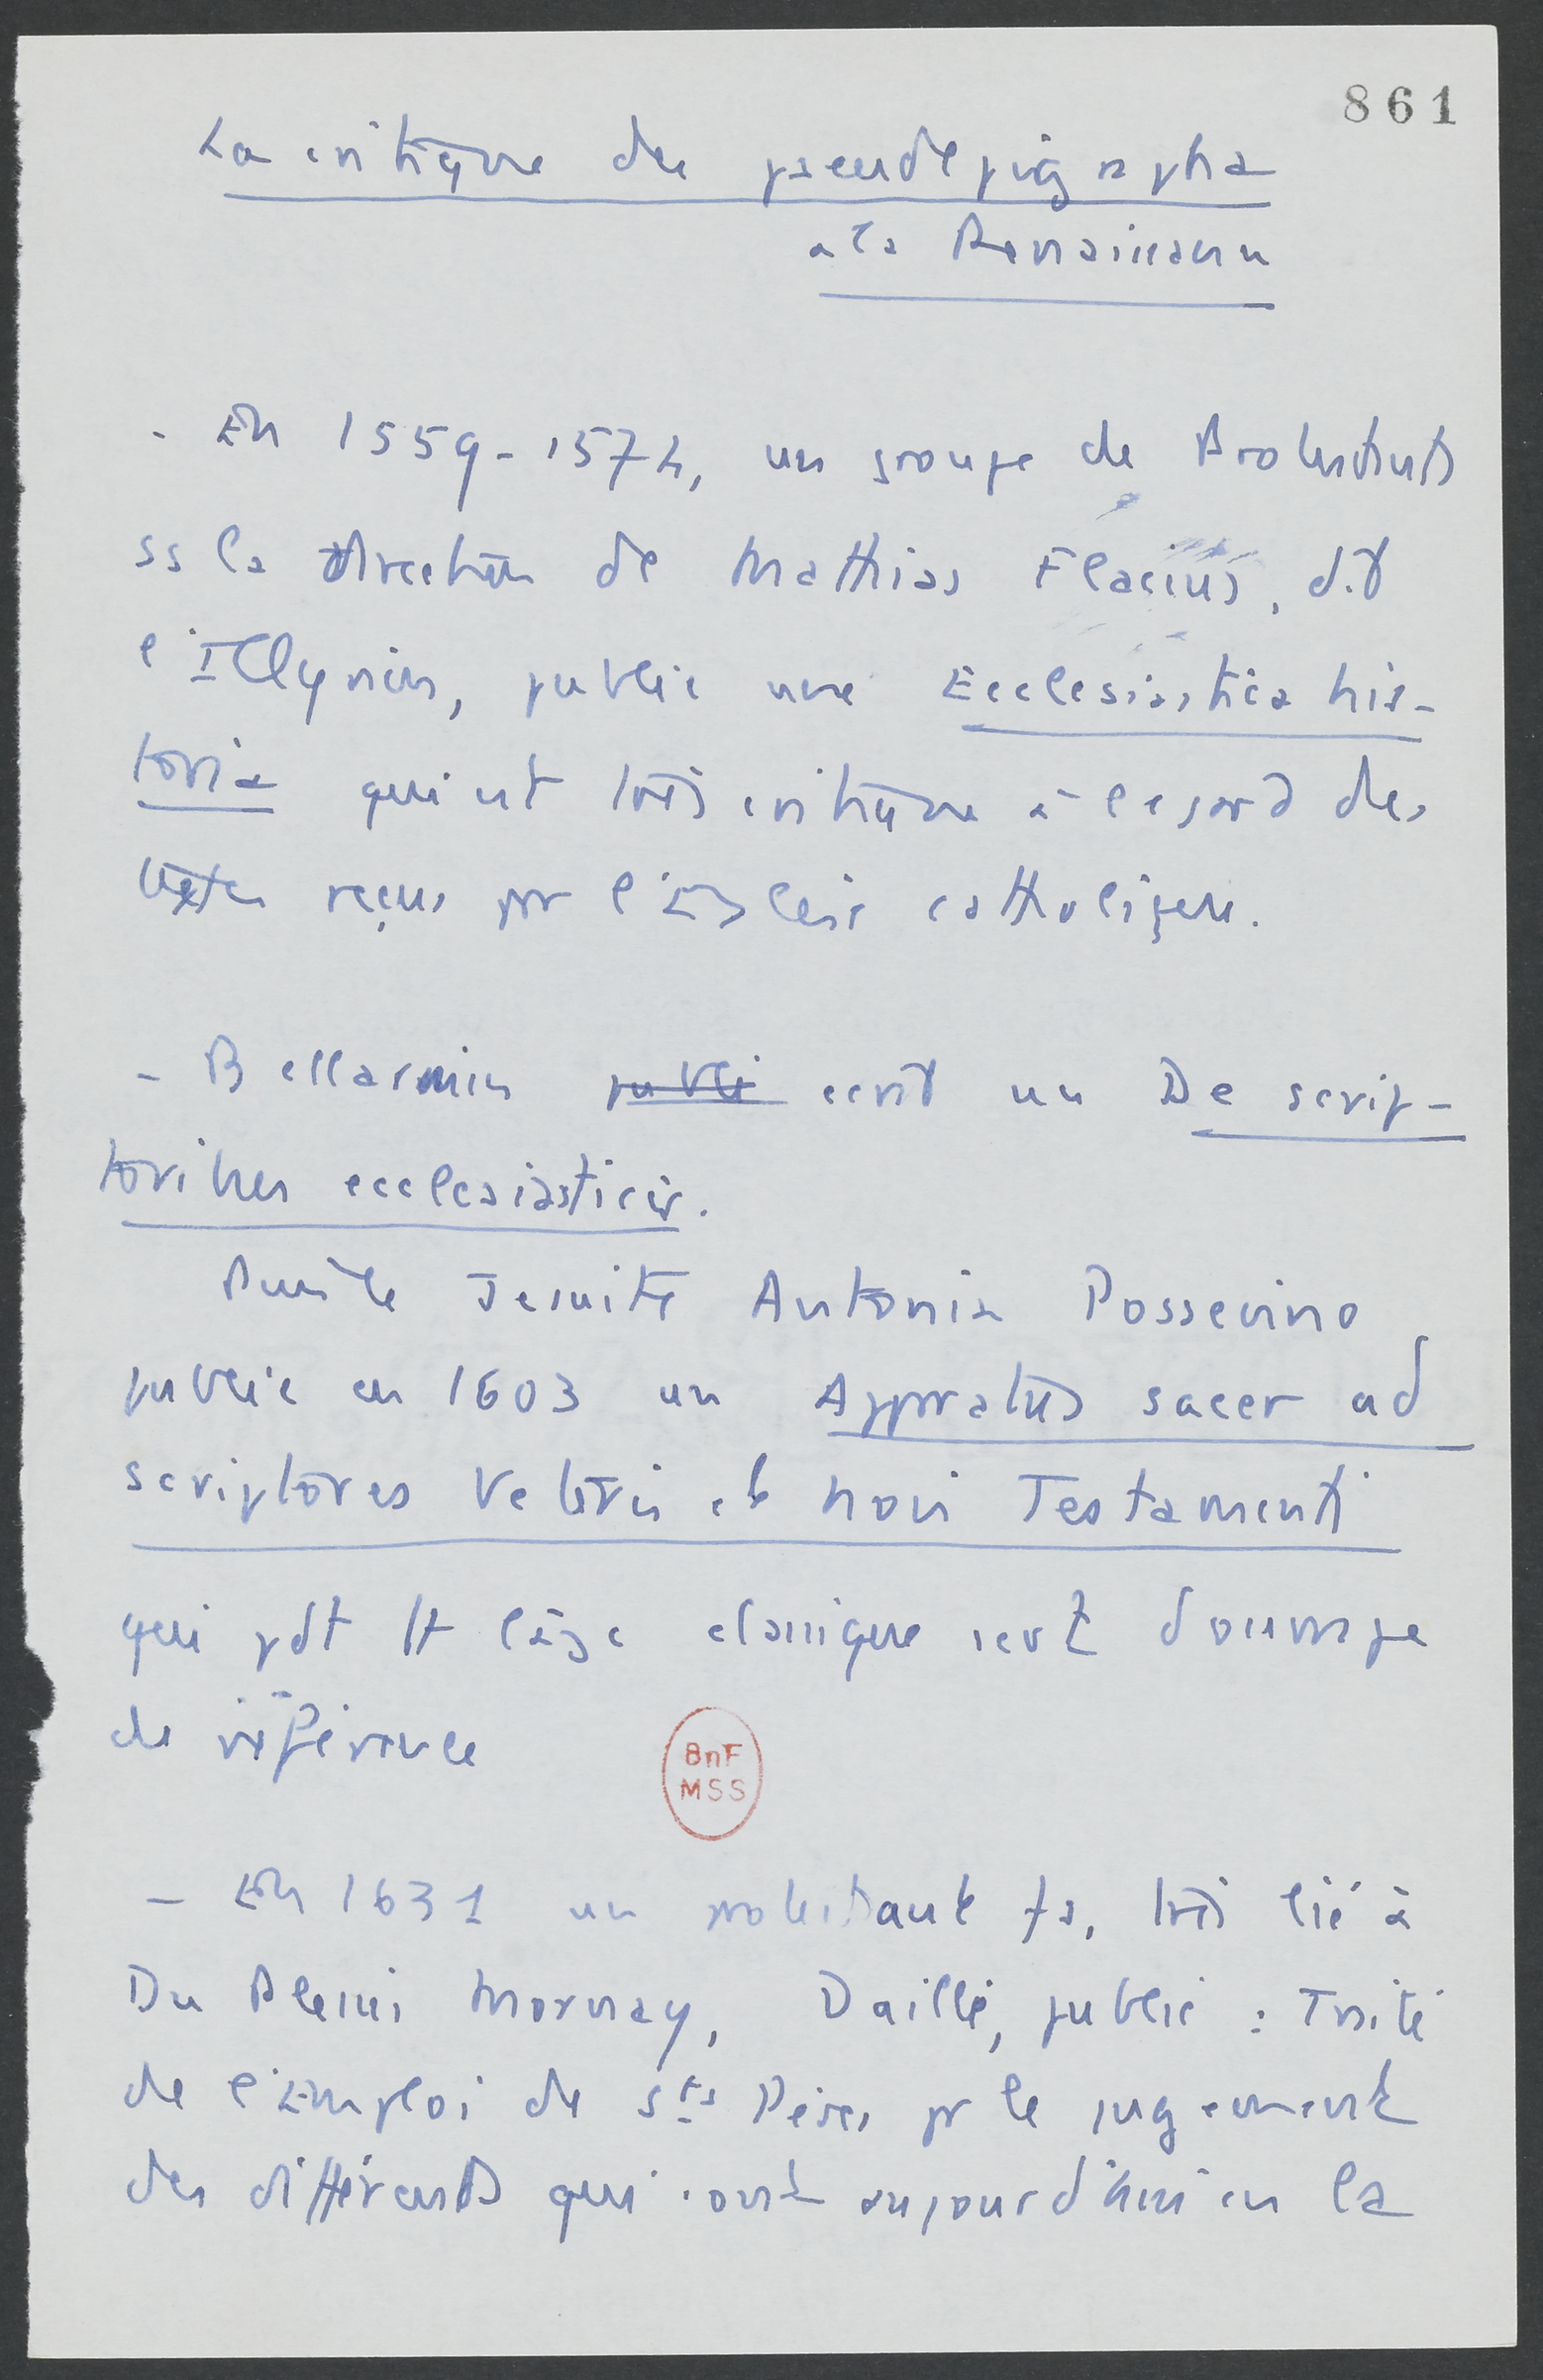 861
La critique des pseudepigrapha
a la Renaissance
- En 1559-1574, un groupe de Protestants
ss la direction de Matthias Flacius, dit
l'Illyrien, publie une Ecclesiastica his-
toria qui est très critique à l'egard des
textes reçus par l'Eglise catholique.
- Bellarmin publi ecrit un De scrip-
toribus ecclesiasticis.
Puis le Jesuite Antonio Possevino
publie en 1603 un Apparatus sacer ad
scriptores Veteris et Novi Testamenti
qui pdt tt l'âge classique sert d'ouvrage
de référence
BnF
MSS
- En 1631 un protestant fs, très lié à
Du Plessis Mornay, Daillé, publie : Traité
de l'Emploi de Sts Pères pr le jugement
des différents qui sont aujourd'hui en la